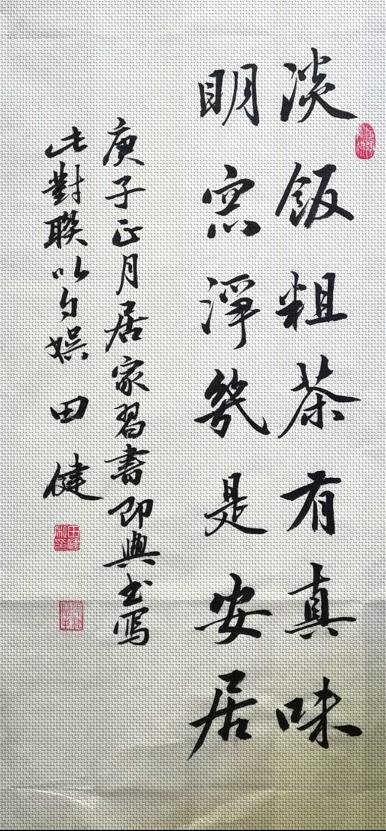 淡飯粗茶有真味
明窓淨幾是安居
庚子正月居家習書即興书写
此對聯以自娱 田健